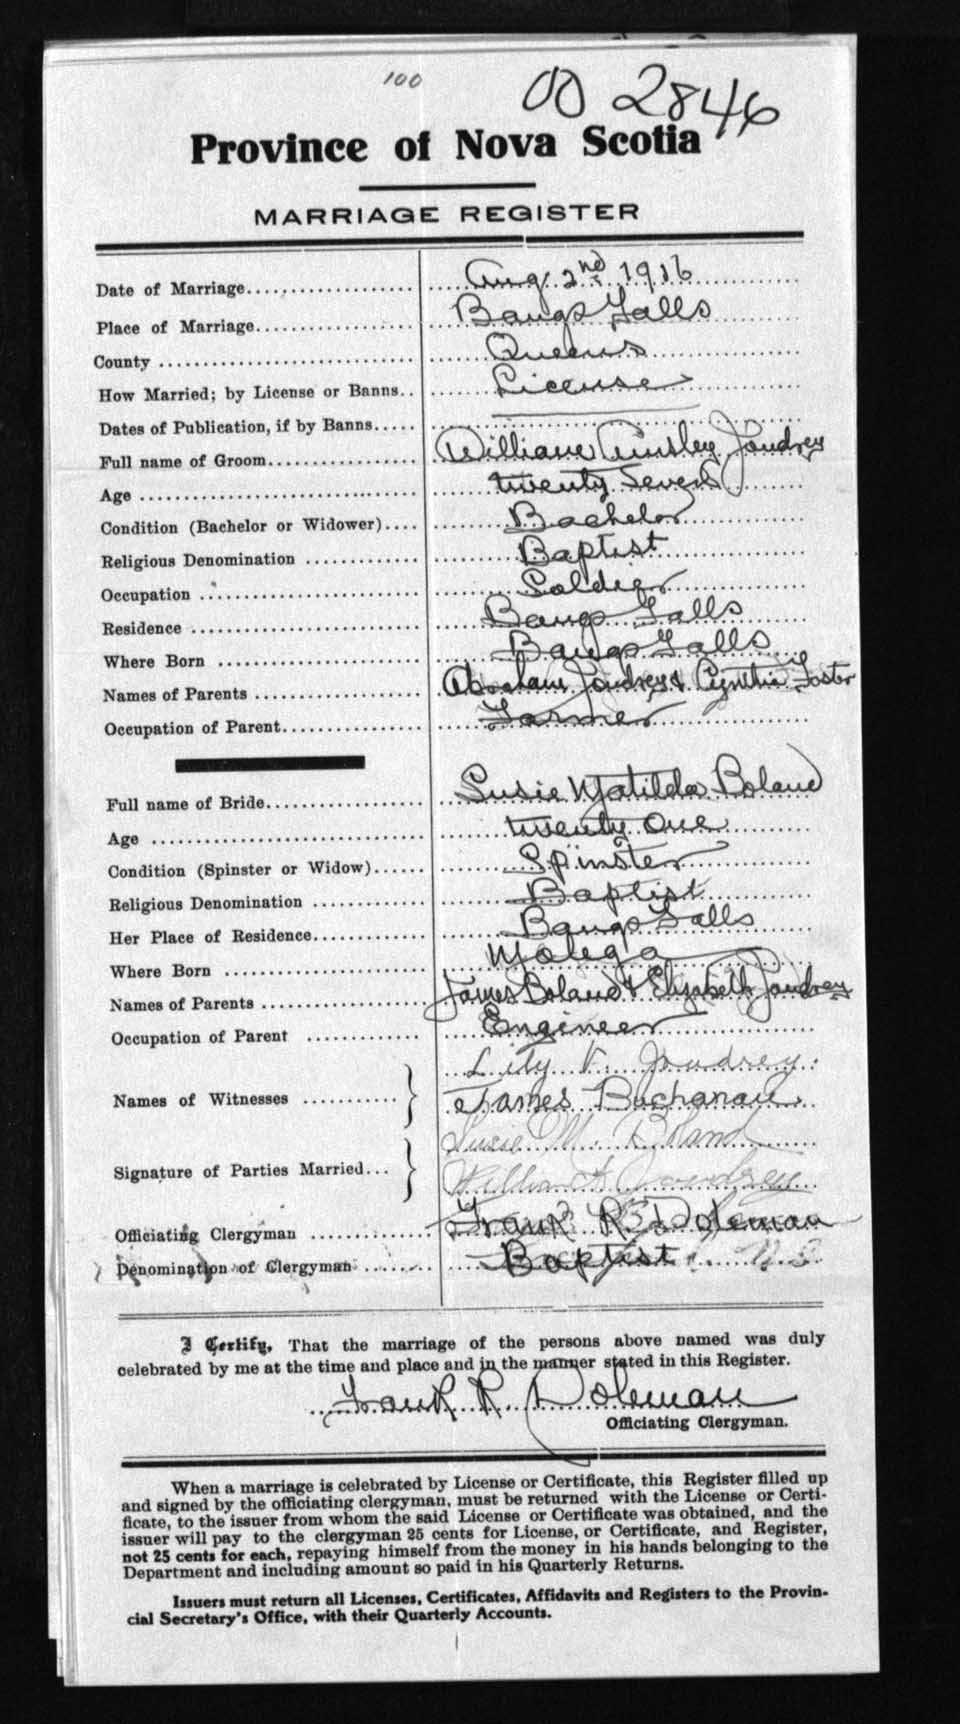 100
00 2846
Province of Nova Scotia
MARRIAGE REGISTER
Date of Marriage.................... Aug. 2nd 1916
Place of Marriage.................... Bangs Falls
County .................... Queens
How Married; by License or Banns.. License
Dates of Publication, if by Banns.....
Full name of Groom.................... William Ainsley Joudrey
Age .................... twenty Seven
Condition (Bachelor or Widower).... Bachelor
Religious Denomination ............ Baptist
Occupation .................... Soldier
Residence .................... Bangs Falls
Where Born .................... Bangs Falls
Names of Parents .................... Abraham Joudrey & Cynthia Foster
Occupation of Parent.................... Farmer
Full name of Bride.................... Susie Matilda Boland
Age .................... twenty One
Condition (Spinster or Widow)...... Spinster
Religious Denomination ............ Baptist
Her Place of Residence............. Bangs Falls
Where Born .................... Molega
Names of Parents .................... James Boland & Elizabeth Joudrey
Occupation of Parent ............. Engineer
Lily V. Joudrey.
Names of Witnesses ............ } James Buchanan
Susie M. Boland
Signature of Parties Married... } William A Joudrey
Officiating Clergyman ............. Frank R Doleman
Denomination of Clergyman ........ Baptist N.S.
I Certify, That the marriage of the persons above named was duly
celebrated by me at the time and place and in the manner stated in this Register.
Frank R. Doleman
Officiating Clergyman.
When a marriage is celebrated by License or Certificate, this Register filled up
and signed by the officiating clergyman, must be returned with the License or Certi-
ficate, to the issuer from whom the said License or Certificate was obtained, and the
issuer will pay to the clergyman 25 cents for License, or Certificate, and Register,
not 25 cents for each, repaying himself from the money in his hands belonging to the
Department and including amount so paid in his Quarterly Returns.
Issuers must return all Licenses, Certificates, Affidavits and Registers to the Provin-
cial Secretary's Office, with their Quarterly Accounts.